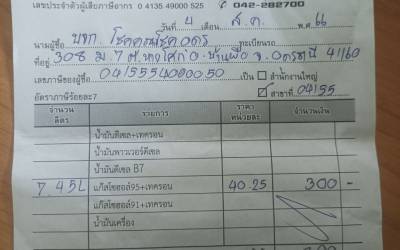 เลขประจำตัวผู้เสียภาษีอากร 0 4135 49000 525 042-282700
วันที่ 4 เดือน ส.ค. พ.ศ. 66
นามผู้ซื้อ บจก. โชคคูณโชค อุดร ทะเบียนรถ
ที่อยู่ 308 ม.7 ต. อ.บ้านผือ จ.อุดรธานี 41160
เลขภาษีของผู้ซื้อ เป็น สำนักงานใหญ่
อัตราภาษีร้อยละ7 สาขาที่ 04155
จำนวน ลิตร รายการ ราคา หน่วยละ จำนวนเงิน
น้ำมันดีเซล+เทครอน
น้ำมันพาวเวอร์ดีเซล
น้ำมันดีเซล B7
7.45L แก๊สโซฮอล์95+เทครอน 40.25 300 -
แก๊สโซฮอล์91+เทครอน
น้ำมันเครื่อง